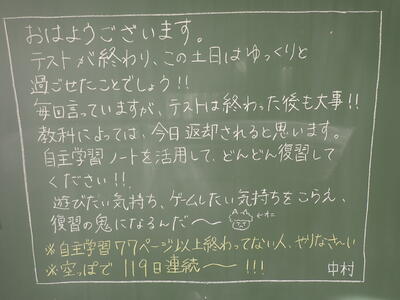 おはようございます。
テストが終わり、この土日はゆっくりと
過ごせたことでしょう!!
毎回言っていますが、テストは終わった後も大事!!
教科によっては、今日返却されると思います。
自主学習ノートを活用して、どんどん復習して
ください!!
遊びたい気持ち、ゲームしたい気持ちをこらえ、
復習の鬼になるんだ〜 ←オニ
※自主学習77ページ以上終わってない人、やりなさ〜い
※空っぽで119日連続〜!!!
中村